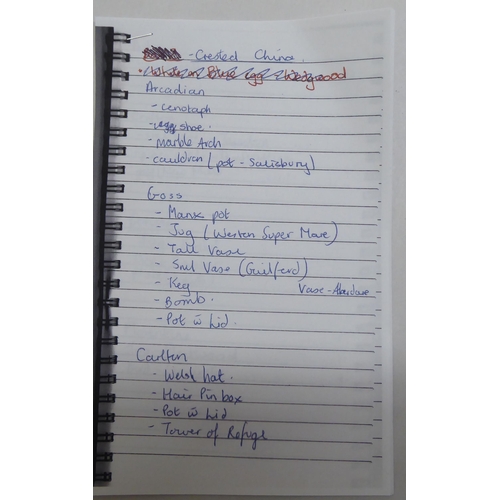 - Crested China.
• White on Blue egg Wedgwood
Arcadian
- cenotaph
- shoe.
- Marble Arch
- cauldron (pot - Salisbury)
Goss
- Manx pot
- Jug (Weston Super Mare)
- Tall Vase
- Sml Vase (Guilford)
- Keg
Vase - Aberdare
- Bomb.
- Pot w̄ Lid.
Carlton
- Welsh hat.
- Hair Pin box
- Pot w̄ Lid
- Tower of Refuge